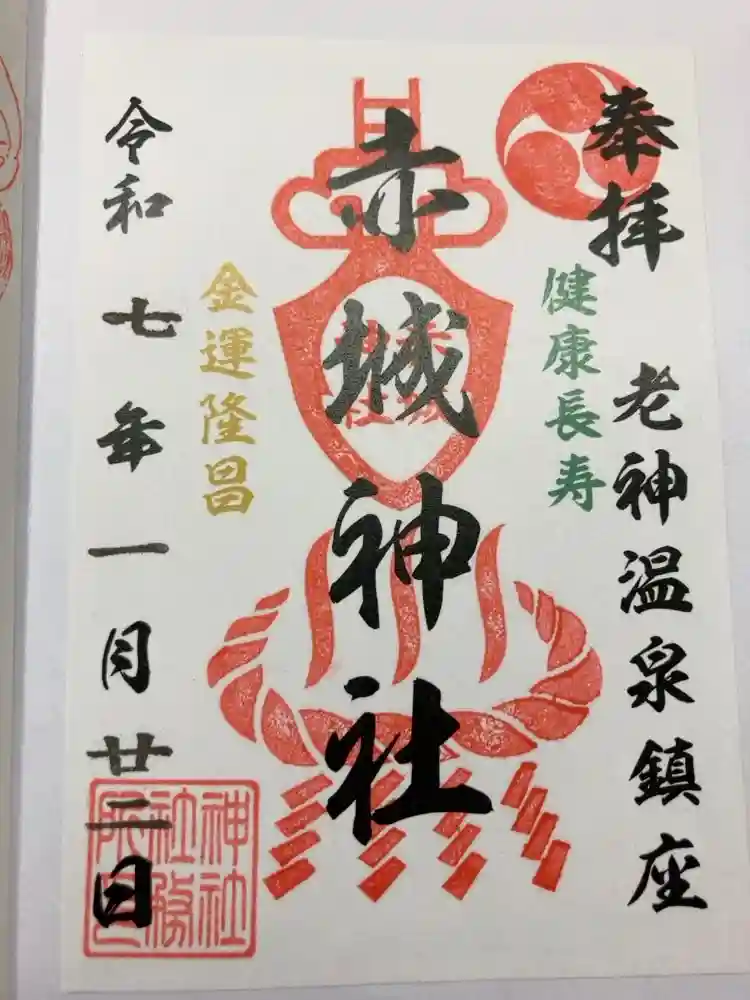 奉拝
老神温泉鎮座
健康長寿
赤城神社
金運隆昌
令和七年一月廿二日